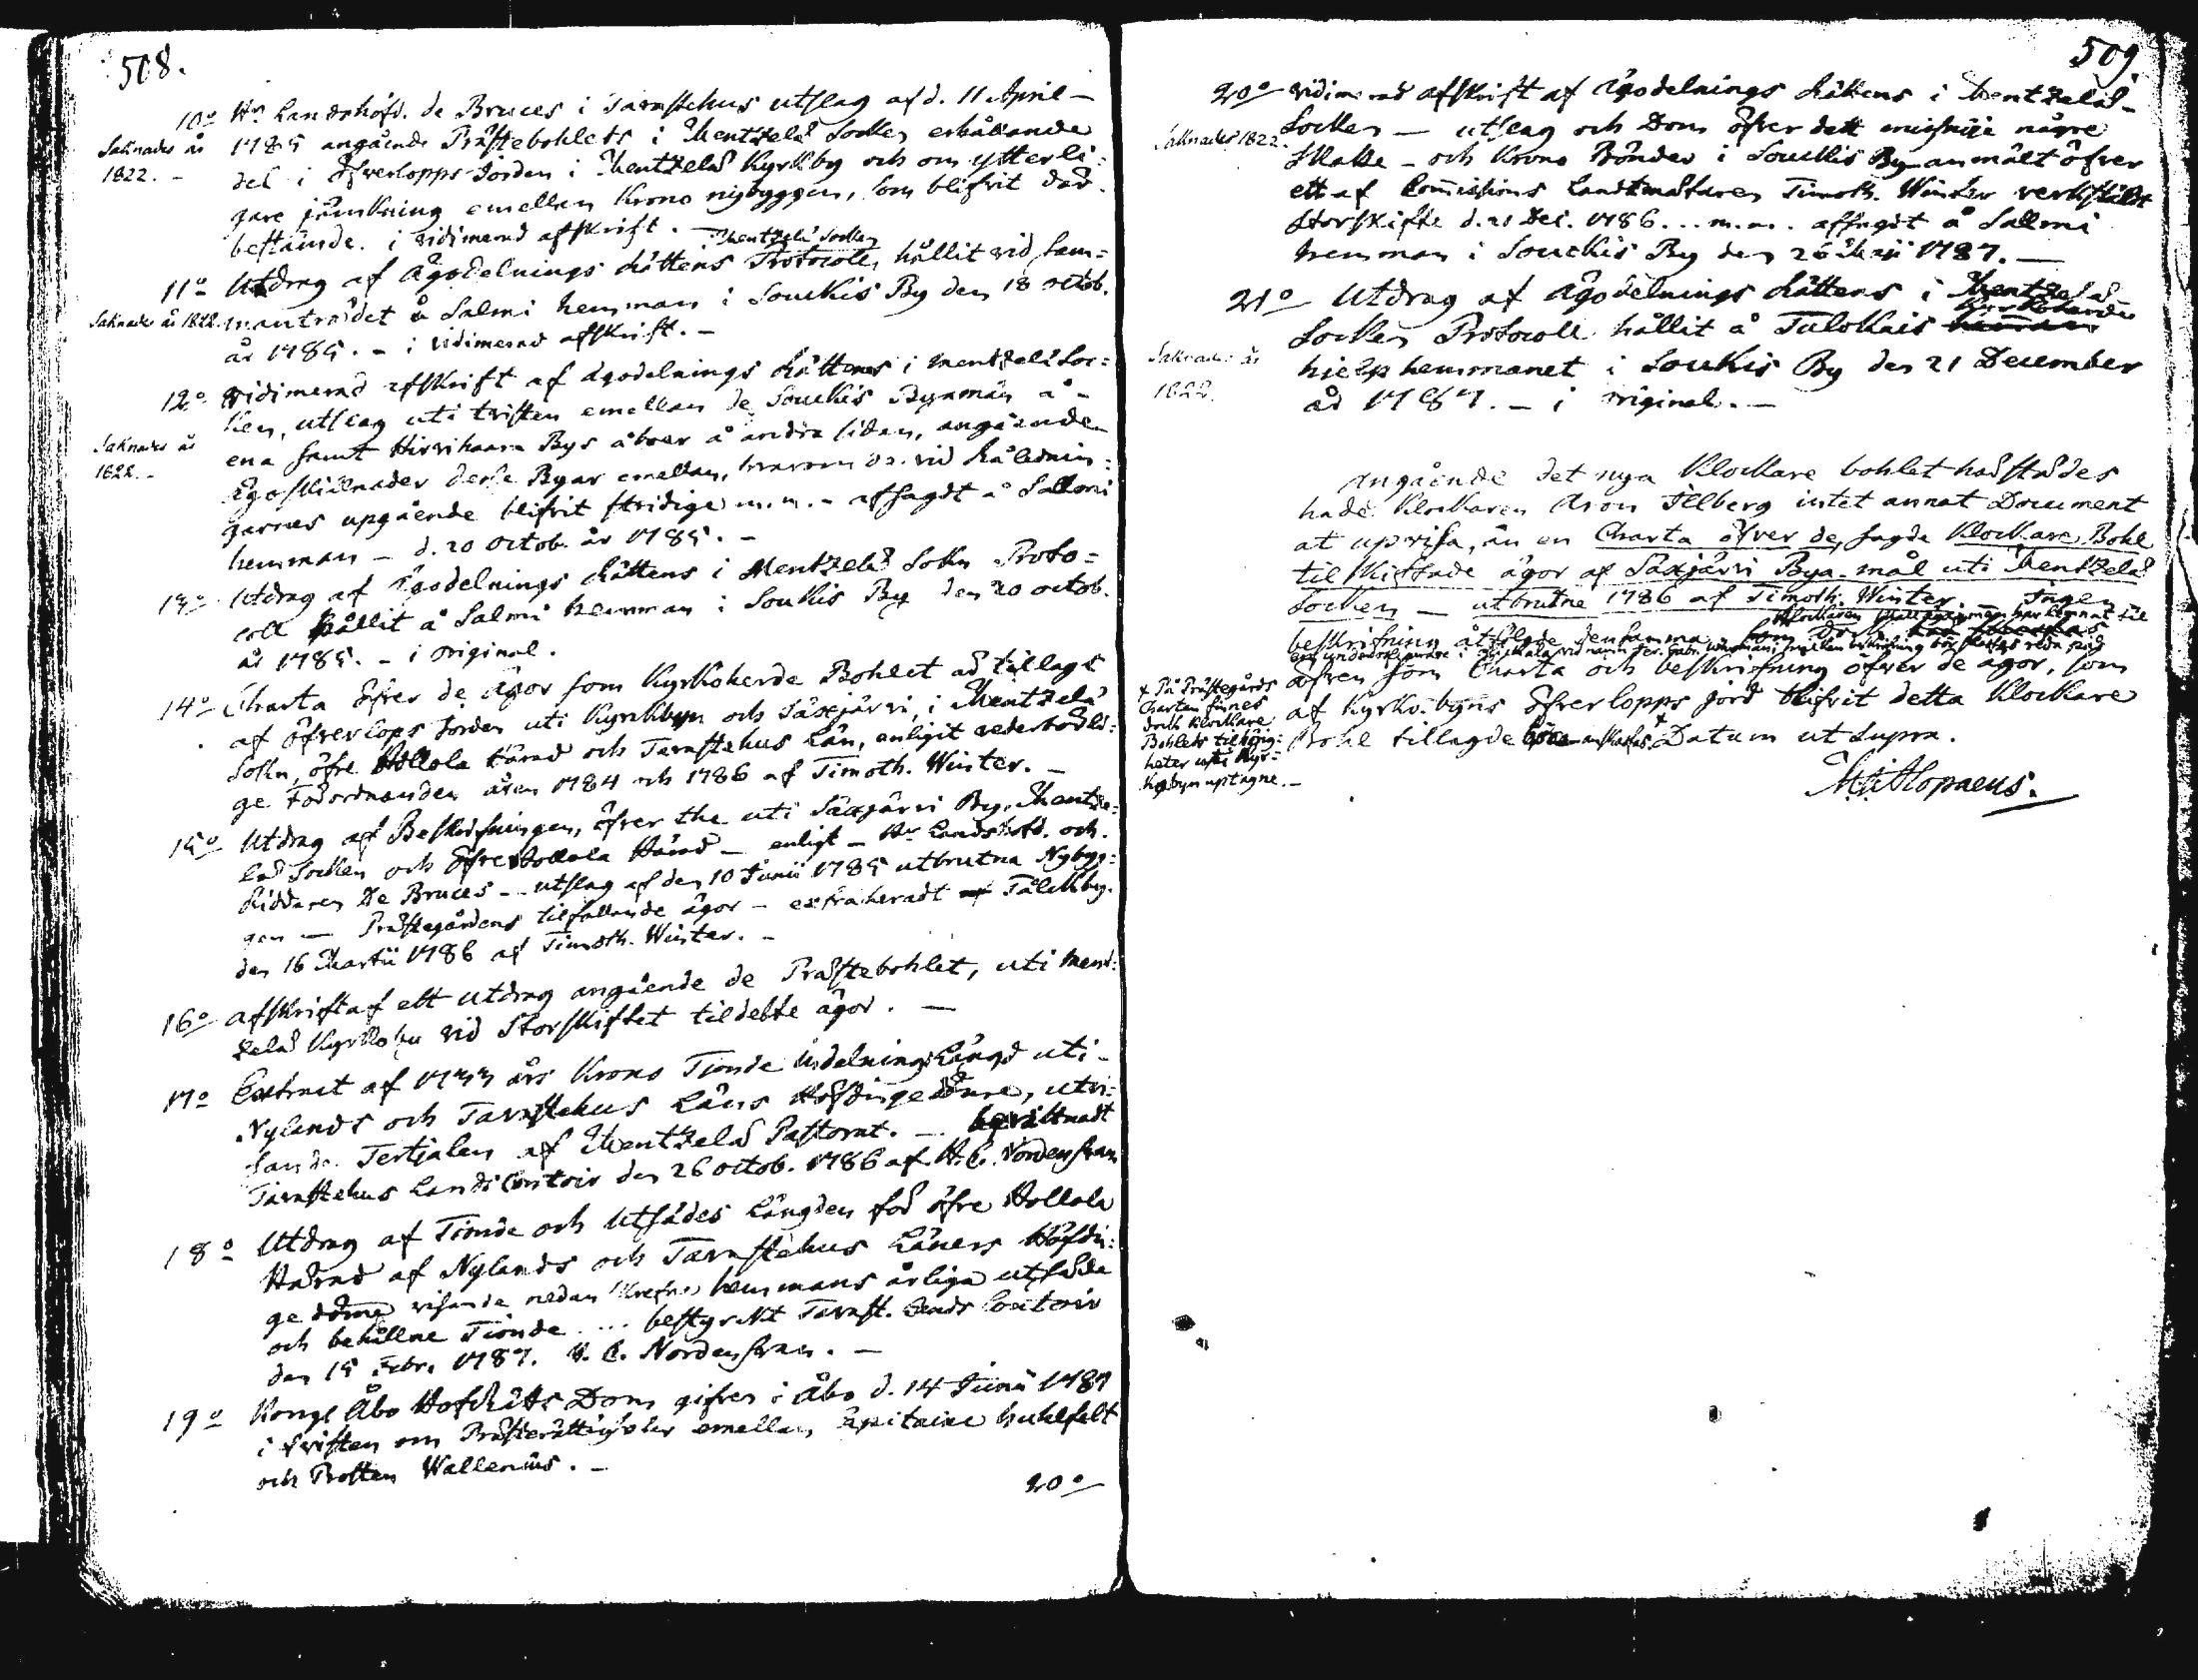 508.
10o Hr Landshöfd. de Bruces i Tavastehus utslag af d. 11 April –
Saknades år 1822. –
1785 angående Prästebohlets i Mentzelä Socken erhållande
del i öfverlopps Jorden i Mentzelä Kyrkby och om ytterli=
gare jämkning emellan Krono nybyggen, som blifvit där
bestämde. i vidimerad afskrift. –
11o Utdrag af Ägodelnings Rättens Mentzelä Socken Protocoll, hållit vid sam=
Saknades år 1822.
manträdet å Salmi hemman i Souckis By den 18 octob.
år 1785. – i vidimerad afskrift. –
12o Vidimerad afskrift af ägodelnings Rättens i Mentzelä Soc=
ken, utslag uti tvisten emellan de Souckis Byamän å –
Saknades år 1822. –
ena samt Hirvihaara Bys åboer å andra sidan, angående
Ägoskillnader desse Byar emellan, hvarom de vid Rålednin=
garnes upgående blifvit stridige m.m. – afsagdt å Salmi
hemman – d. 20 octob. år 1785. –
13o Utdrag af Ägodelnings Rättens i Mentzelä Sokn Proto=
coll hållit å Salmi hemman i Souckis By den 20 octob.
år 1785. – i original.
14o Charta öfver de ägor som Kyrkoherde Bohlet äd tillagt
af öfverlops Jorden uti Kyrkbyn och Säxjärvi, i Mentzelä
Sokn, öfre Hollola härad och Tavastehus Län, enligit vederbörli=
ge Förordnanden åren 1784 och 1786 af Timoth. Winter. –
15o Utdrag af Beskrifningen, öfver the uti Säxjärvi By, Mentze=
lä Socken och öfre Hollola Härad – enligt – Hr Landshöfd. och
Riddaren De Bruces – utslag af den 10 Junii 1785 utbrutna Nybyg=
gen – Prästegårdens tilfallande ägor – extraheradt Tålckby.
den 16 Martii 1786 af Timoth. Winter. –
16o afskrift af ett utdrag angående de Prästebohlet, uti Ment=
zelä Kyrkoby vid Storskiftet tildelte ägor. –
17o Extract af 1733 års Krono Tionde Indelnings Längd uti –
Nylands och Tavastehus Läns Höfdingedöme, utvi=
sande Tertialen af Mentzelä Pastorat. – bevittnadt
Tavastehus Lands Contoir den 26 octob. 1786 af H. C. Nordensvan
18o Utdrag af Tionde och Utsädes Längden för öfre Hollola
Härad af Nylands och Tavastehus Läners Höfdin=
ge döme visande nedan skrefne hemmans årliga utsäde
och behållne Tionde ... bestyrkt Tavast. Lands Contoir
den 15 Febr. 1787. H. C. Nordensvan. –
19o Kongl Åbo HofRätts Dom gifven i Åbo d. 14 Junii 1787
i tvisten om Prästerättigheter emellan Capitaine Huhlfelt
och Prosten Wallenius. –
20o
509
20o vidimerad afskrift af Ägodelnings Rättens i Mentzelä –
Saknades 1822.
Socken – utslag och Dom öfver dett missnöje någre
Skatte – och Krono Bönder i Souckis By anmält öfver
ett af Commissions Landtmätaren Timoth. Winter verkstäldt
Storskifte d. 21 Dec. 1786 ... m.m. afsagdt å Sallmi
hemman i Souckis By den 26 Maji 1787. –
21o Utdrag af Ägodelnings Rättens i Mentzelä
Socken Protocoll hållit å Tulokais Kyrkoherde
Saknades år 1822.
hjelp hemmanet i Souckis By den 21 December
år 1787. – i original. –
angående det nya Klockare bohlet härstädes
hade Klockaren Aron Filberg intet annat Document
at upvisa, än en Charta öfver de, sagde Klockare Bohl
tilskiftade ägor af Säxjärvi Bya-mål uti Mentzelä
Socken – utbrutne 1786 af Timoth. Winter. Ingen
beskrifning åtfölgde densamma,
äfven som Charta och beskrifning öfver de ägor, som
af Kyrko-byns öfverlopps jord blifvit detta Klockare
Bohl tillagde böra anskaffas.+ Datum ut Supra.
+ På Prästegårds
Chartan finnes
dock Klockare
Bohlets tilhörig=
heter uti Kyr=
kobyn uptagne. –
Alopaeus.